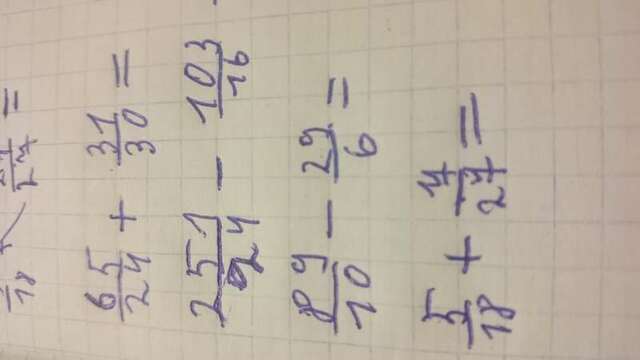 18 27 =
65/24 + 31/30 =
251/24 - 103/16 -
89/10 - 29/6 =
5/18 + 4/27 =